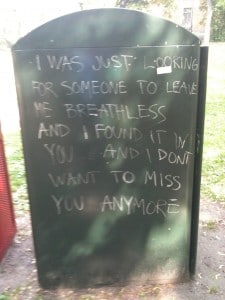 I WAS JUST LOOKING
FOR SOMEONE TO LEAVE
ME BREATHLESS
AND I FOUND IT IN
YOU AND I DONT
WANT TO MISS
YOU ANYMORE